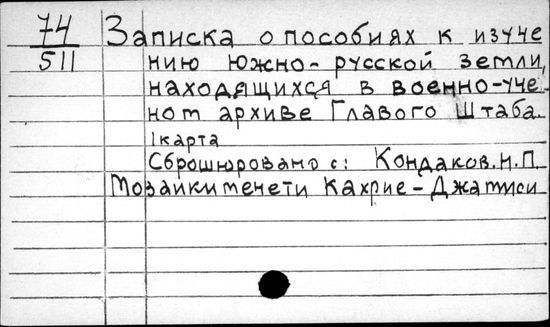 74 Записка о пособиях к изуче
511 нию южно-русской земли,
находящихся в военно-уче
ном архиве Главого Штаба.
1 карта
Сброшюровано с: Кондаков.Н.П.
Мозаики мечети Кахрие-Джамиси